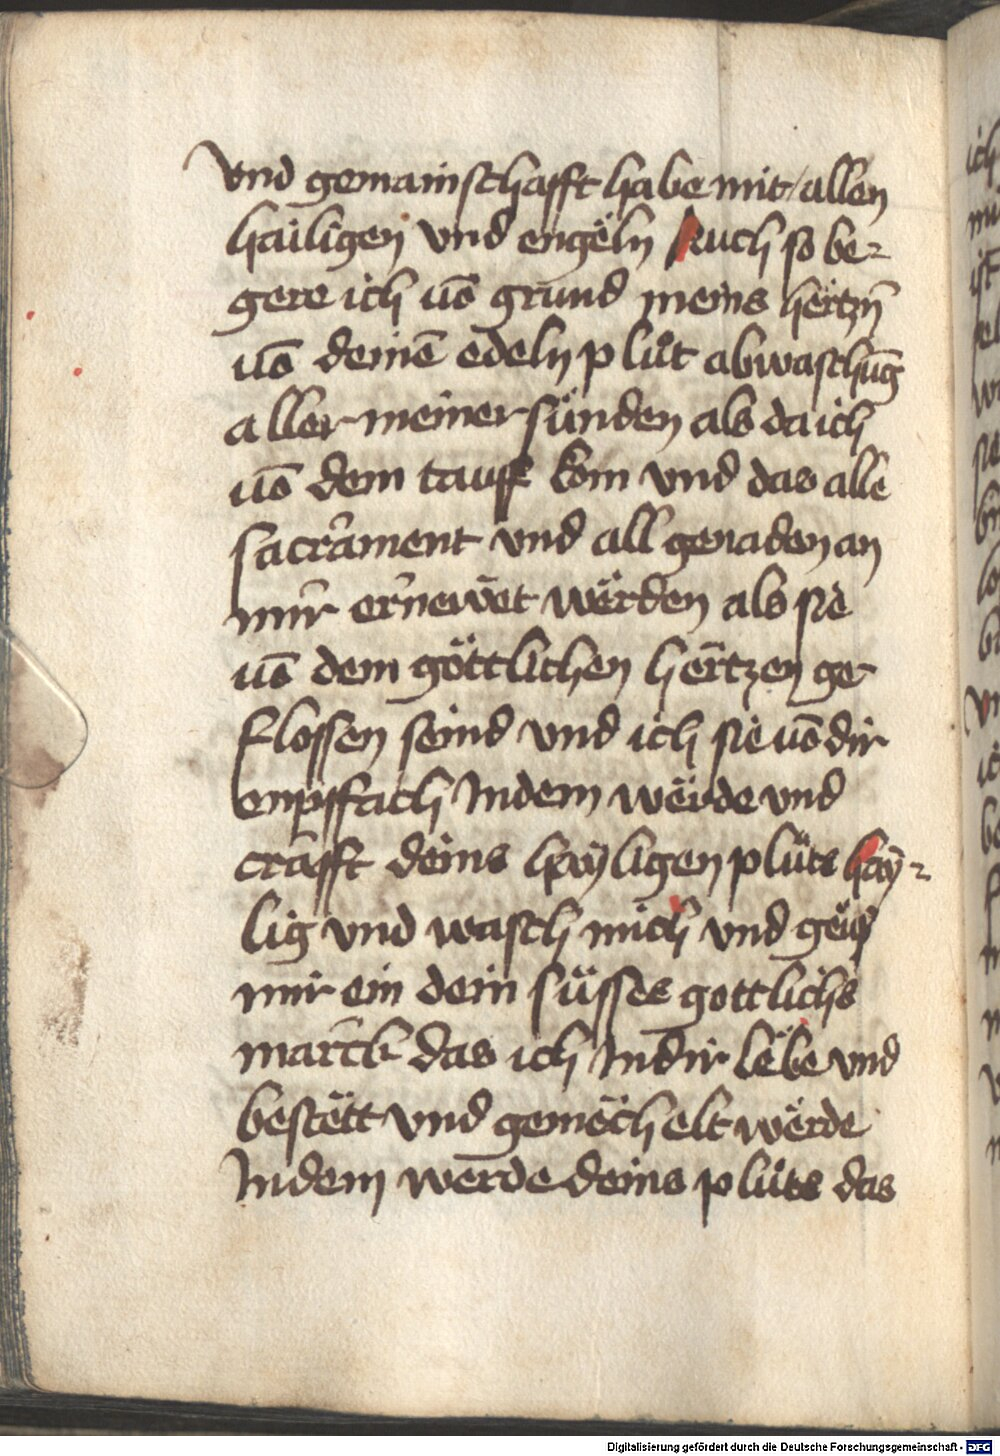 vnd gemainschafft habe mit allen
hailigen vnd engeln Auch so be-
gere ich uß grund meins hertzn̄
uß deinē edeln plůt abwaschūg
aller meiner sünden als da ich
uß dem tauff kom vnd das alle
sacrament vnd all genaden an
mir ernewet werden als sie
uß dem göttlichen hertzen ge
flossen seind vnd ich sie uō dir
enpffach Indem werde vnd
crafft deins hayligen plůts hay-
lig vnd wasch mich vnd geüß
mir ein dein süsses gottlichs
marck das ich Indir lebe vnd
bestett vnd gemëchelt werde
Indem werde deins plůts das
Digitalisierung gefördert durch die Deutsche Forschungsgemeinschaft - DFG